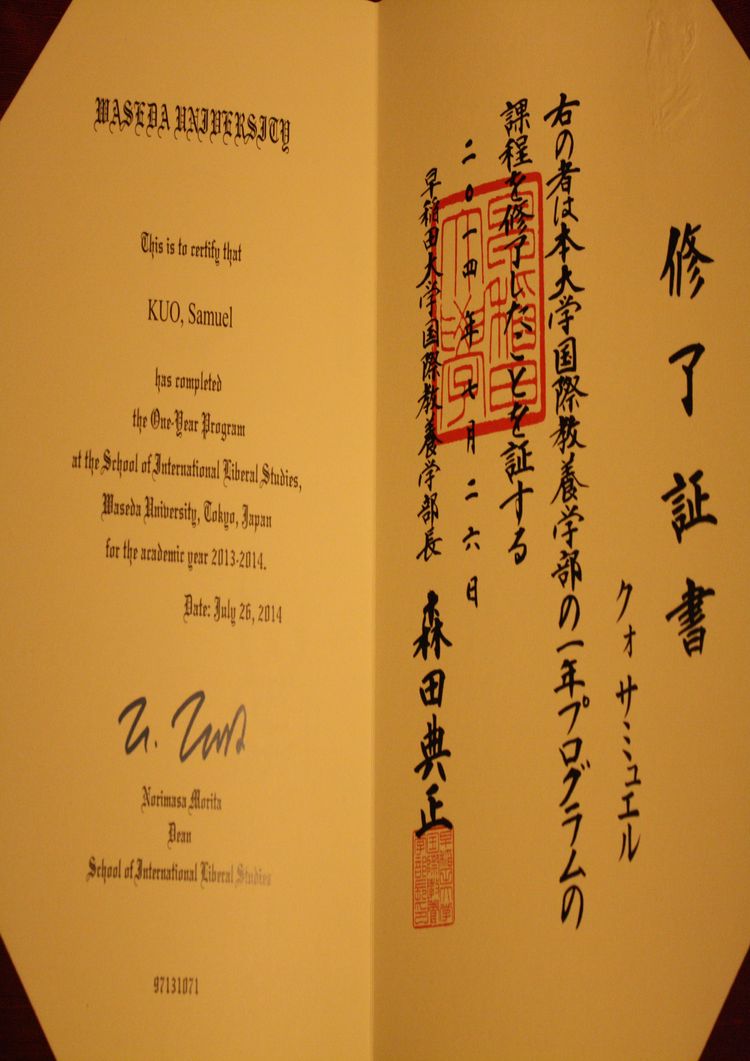 WASEDA UNIVERSITY
This is to certify that
KUO, Samuel
has completed
the One-Year Program
at the School of International Liberal Studies,
Waseda University, Tokyo, Japan
for the academic year 2013-2014.
Date: July 26, 2014
Norimasa Morita
Dean
School of International Liberal Studies
97131071
修了証書
クォ サミュエル
右の者は本大学国際教養学部の一年プログラムの
課程を修了したことを証する
二〇一四年七月二六日
早稲田大学国際教養学部長 森田典正